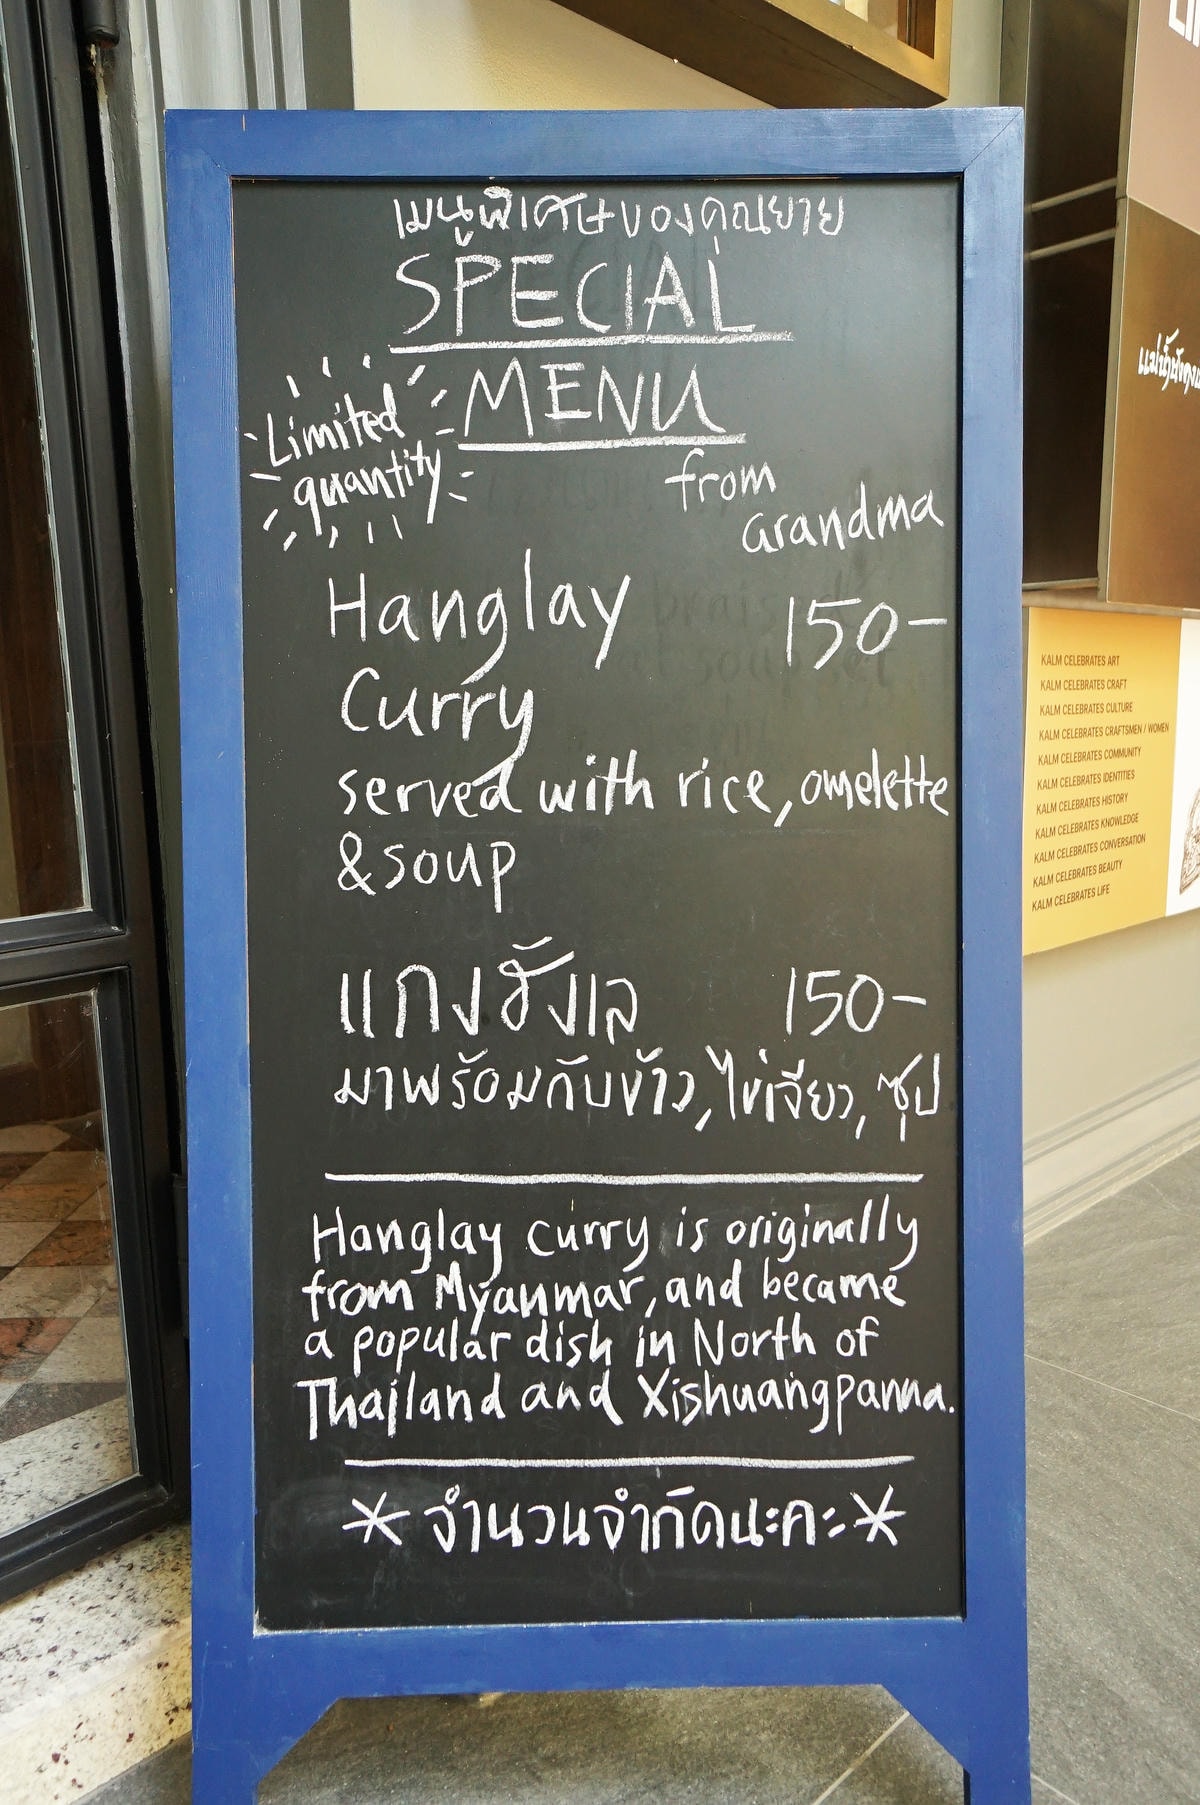 เมนูพิเศษของคุณยาย
SPECIAL
MENU
Limited
quantity
from
Grandma
Hanglay 150-
Curry
served with rice, omelette
& soup
แกงฮังเล 150-
มาพร้อมกับข้าว, ไข่เจียว, ซุป
Hanglay curry is originally
from Myanmar, and became
a popular dish in North of
Thailand and Xishuangpanna.
* จำนวนจำกัดนะคะ *
KALM CELEBRATES ART
KALM CELEBRATES CRAFT
KALM CELEBRATES CULTURE
KALM CELEBRATES CRAFTSMEN / WOMEN
KALM CELEBRATES COMMUNITY
KALM CELEBRATES IDENTITIES
KALM CELEBRATES HISTORY
KALM CELEBRATES KNOWLEDGE
KALM CELEBRATES CONVERSATION
KALM CELEBRATES BEAUTY
KALM CELEBRATES LIFE